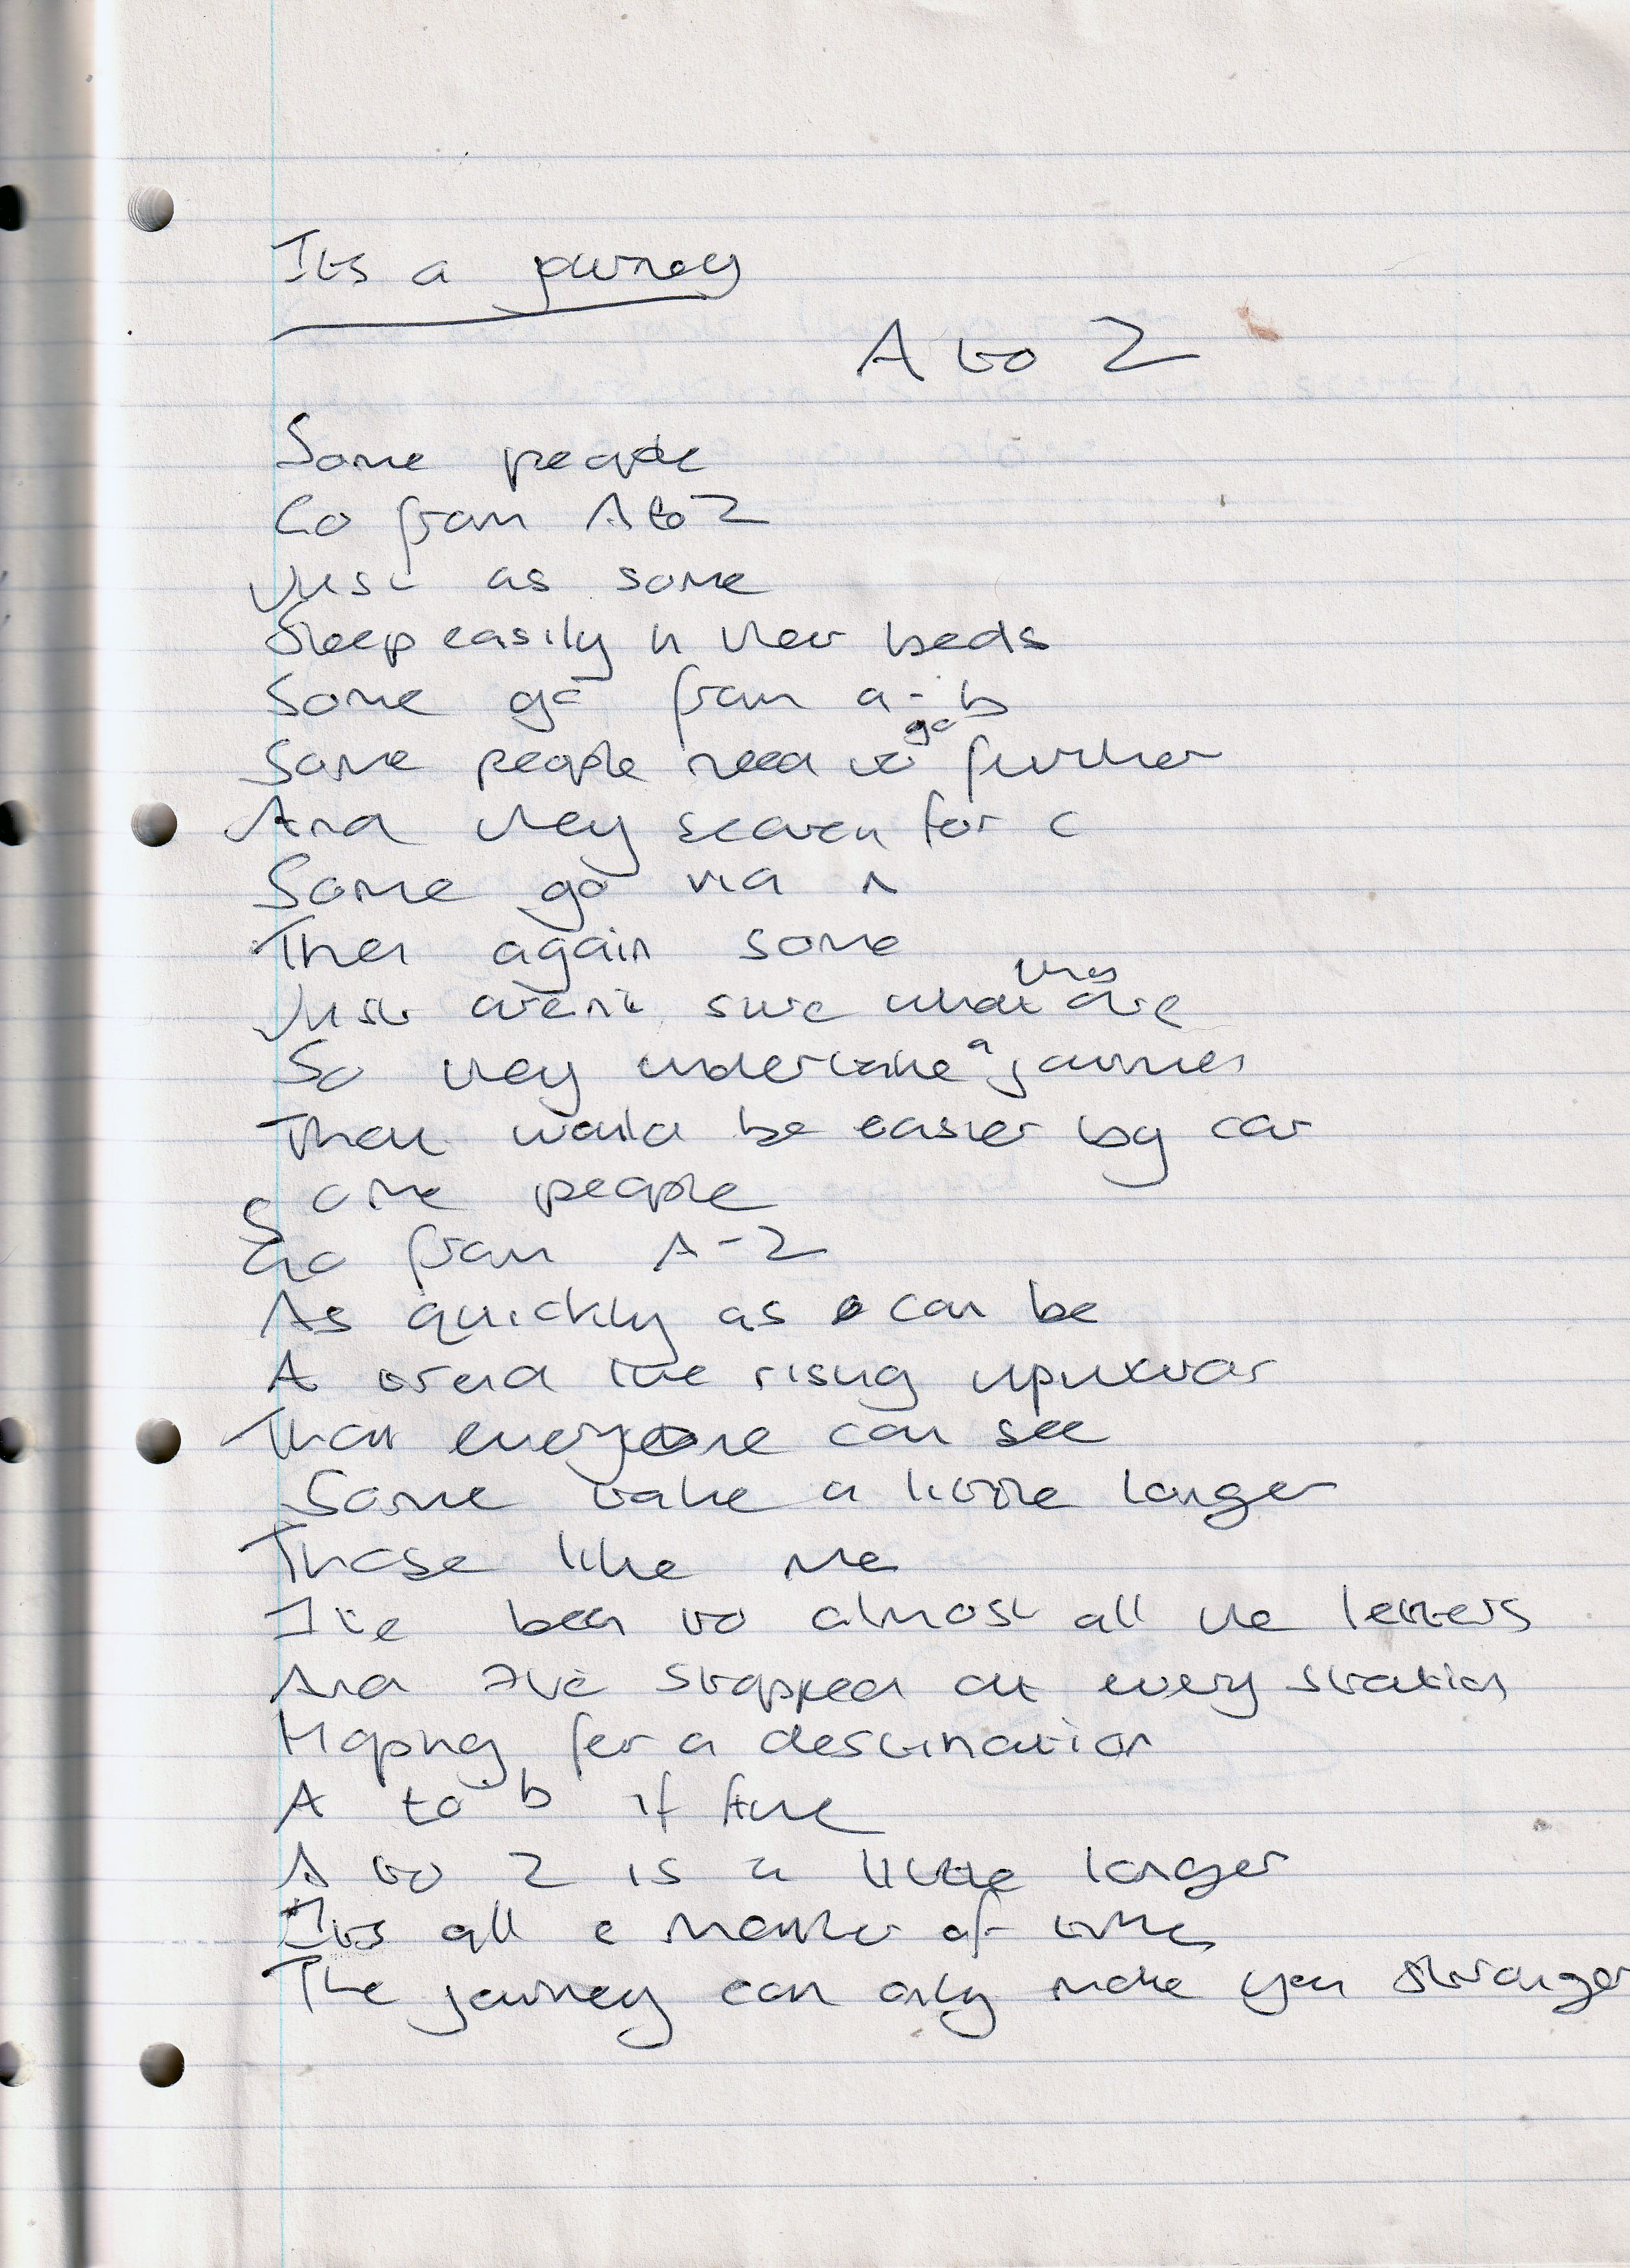 Its a journey
A to Z
Some people
Go from A to Z
Just as some
Sleep easily in their beds
Some go from a-b
Some people need to go further
And they search for c
Some go via n
Then again some
Just aren't sure what they are
So they undertake a journey
That would be easier by car
Some people
Go from A-Z
As quickly as can be
A trend line rising
That everyone can see
Some take a little longer
Those like me
I've been to almost all the letters
And I've stopped at every station
Hoping for a destination
A to b if fine
A to Z is a little longer
Its all a matter of time
The journey can only make you stronger